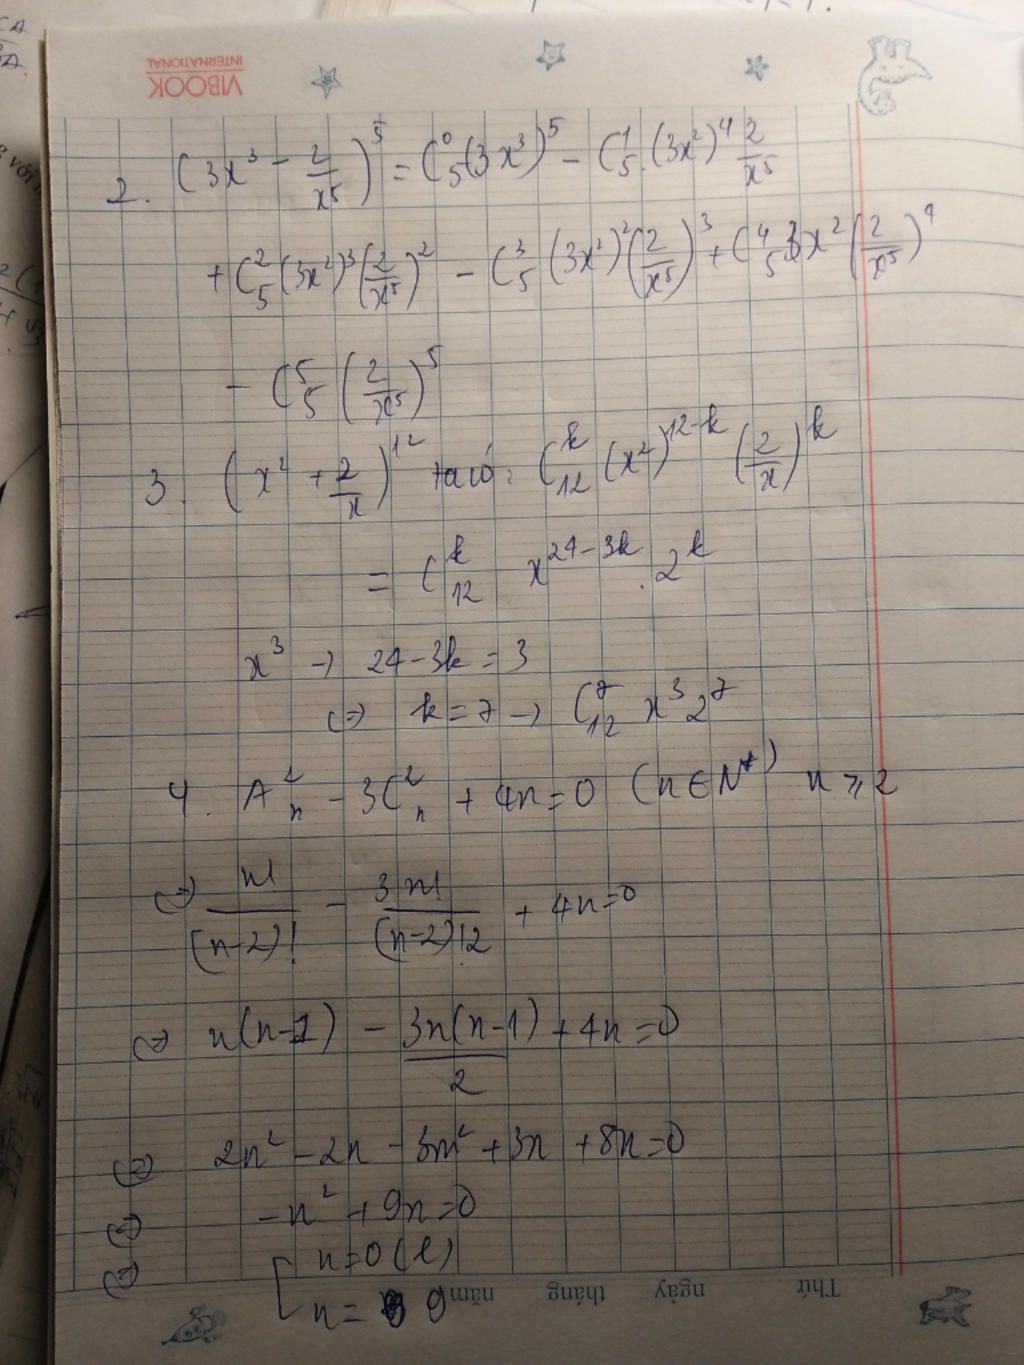 VIBOOK
INTERNATIONAL
2. (3x³ - 2/x⁵)⁵ = C₅⁰(3x³)⁵ - C₅¹.(3x²)⁴ 2/x⁵
+ C₅²(3x²)³(2/x⁵)² - C₅³(3x²)²(2/x⁵)³ + C₅⁴3x²(2/x⁵)⁴
- C₅⁵(2/x⁵)⁵
3. (x² + 2/x)¹² ta có: C₁₂ᵏ(x²)¹²⁻ᵏ(2/x)ᵏ
= C₁₂ᵏ x²⁴⁻³ᵏ.2ᵏ
x³ → 24-3k = 3
⇔ k = 7 → C₁₂⁷ x³2⁷
4. Aₙ² - 3Cₙ² + 4n = 0 (n ∈ N*) n ≥ 2
⇔ n!/(n-2)! - 3n!/(n-2)!2 + 4n = 0
⇔ n(n-1) - 3n(n-1)/2 + 4n = 0
⇔ 2n² - 2n - 3n² + 3n + 8n = 0
⇔ -n² + 9n = 0
⇔ [ n = 0 (l)
n = 9
Thứ ngày tháng năm